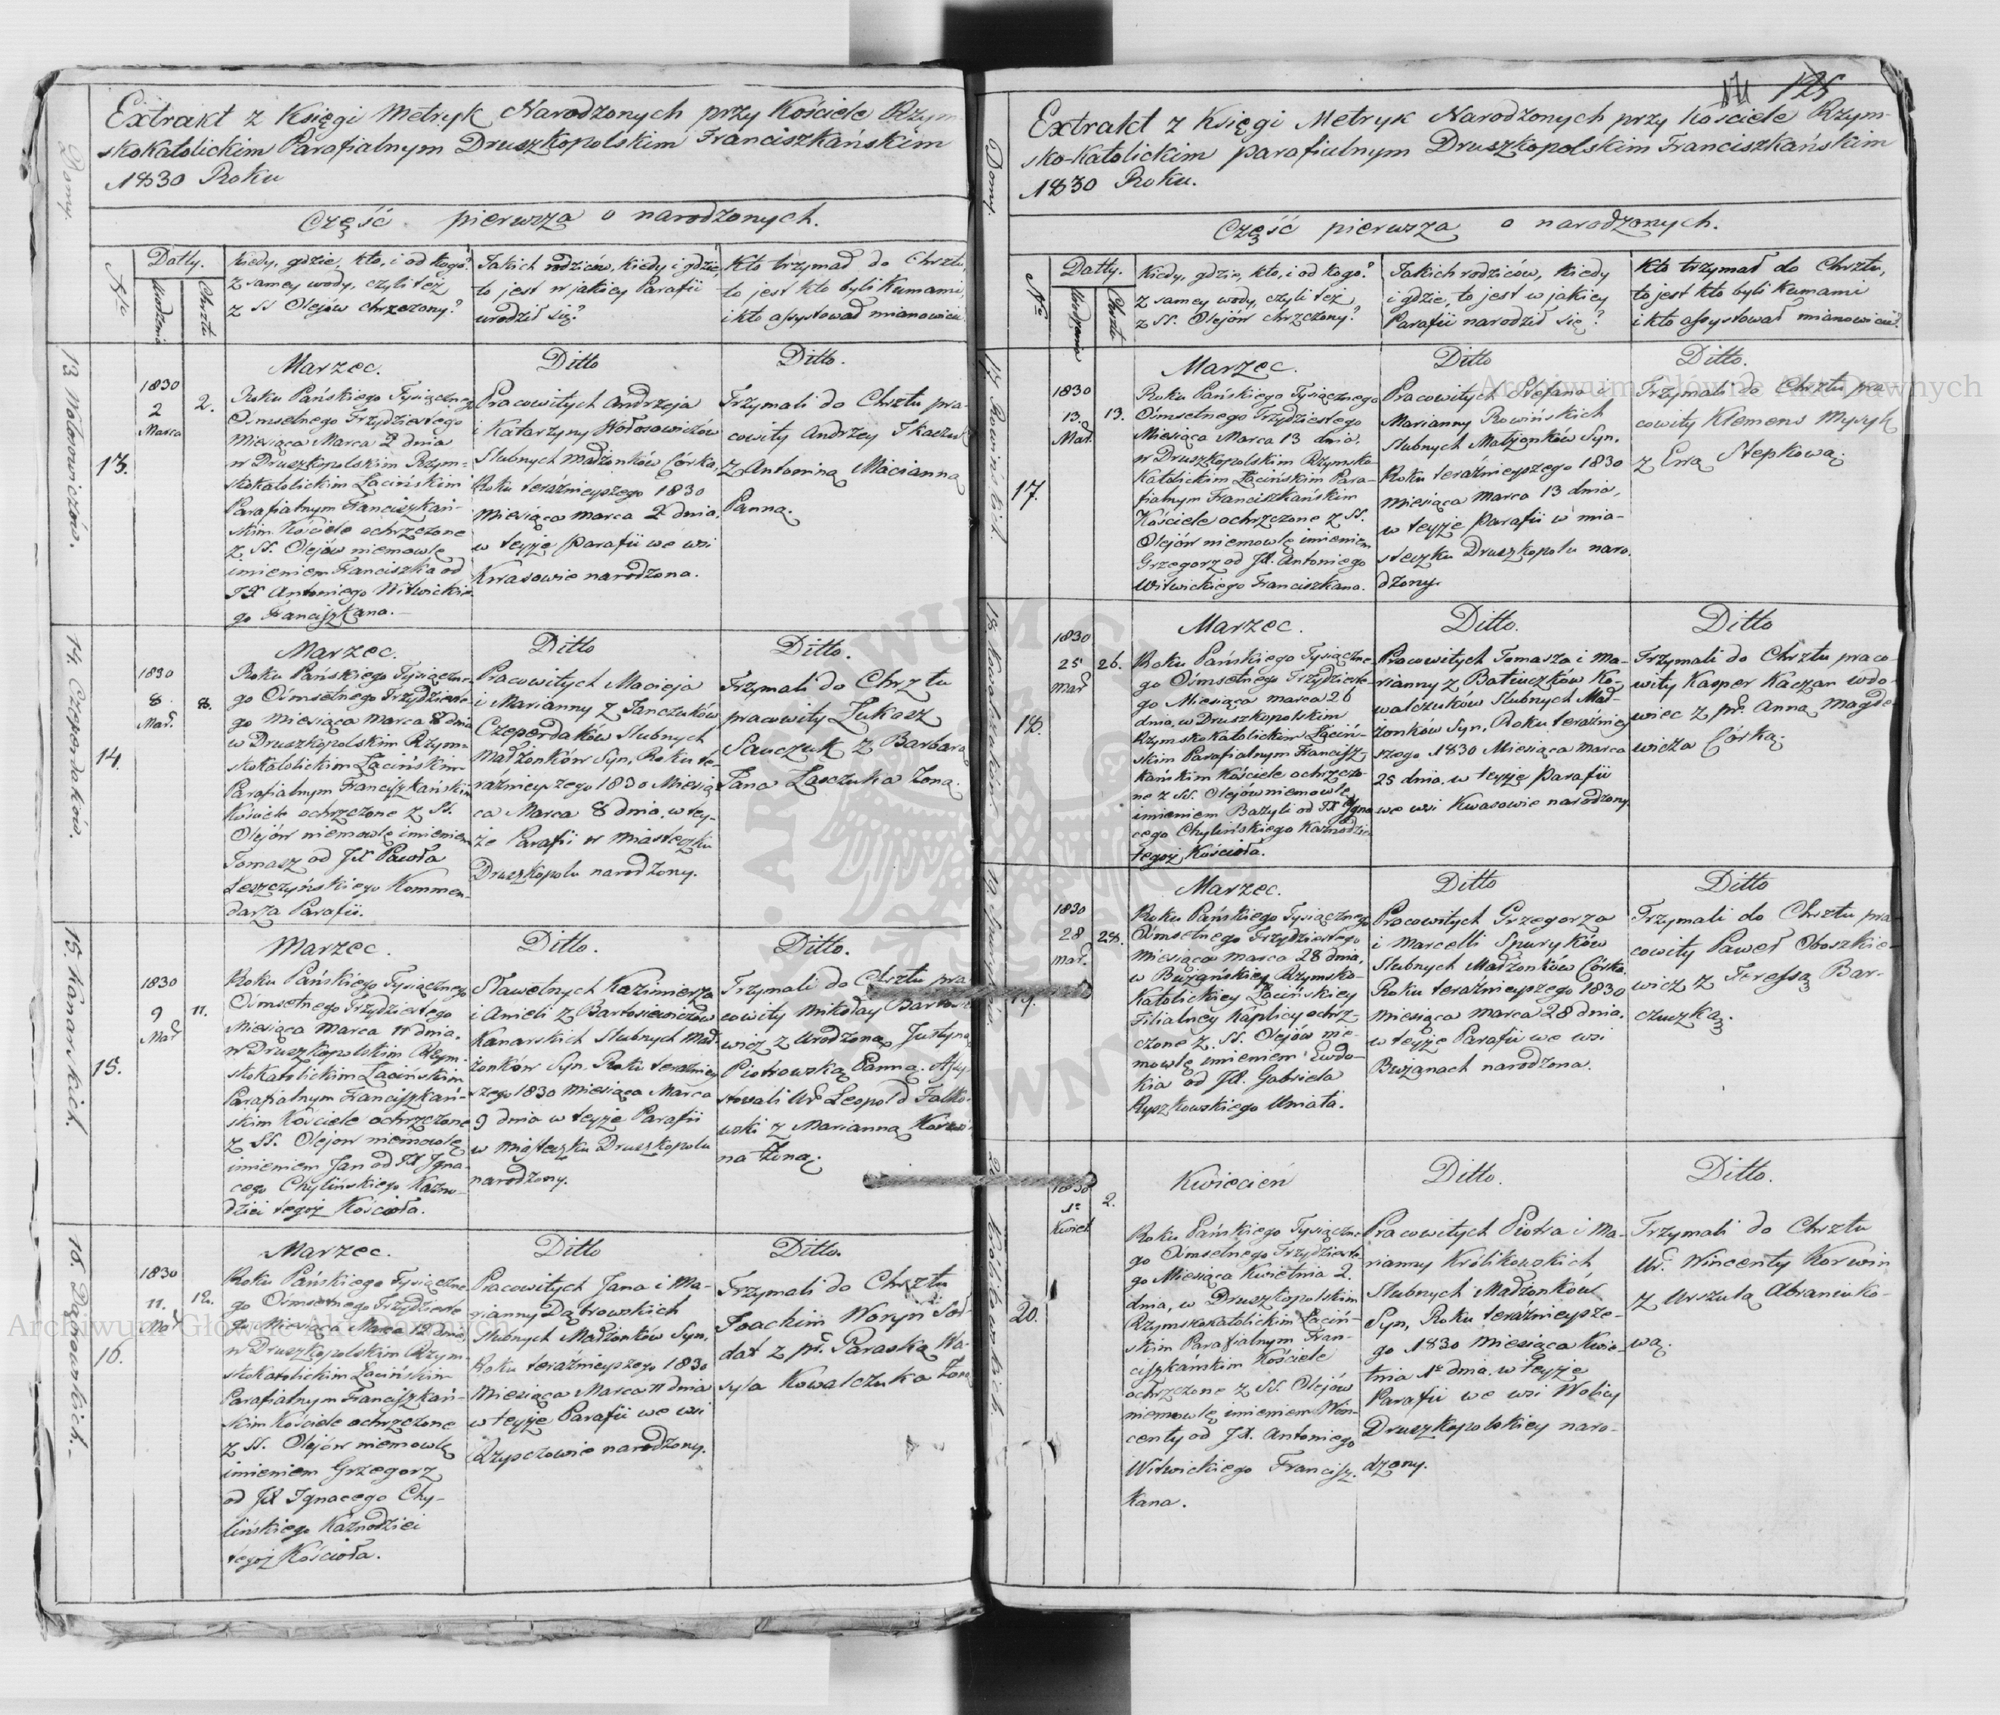 Extrakt z Księgi Metryk Narodzonych przy Kościele Rzym
skokatolickim Parafialnym Druszkopolskim Franciszkańskim
1830 Roku
Część pierwsza o narodzonych.
Domy.
Nro
Datty.
Urodzenia
Chrztu
Kiedy, gdzie, kto, i od kogo?
z samey wody, czyli też
z SS Olejów chrzczony?
Jakich rodziców, kiedy i gdzie
to jest w jakiey Parafii
urodził się?
Kto trzymał do Chrztu,
to jest kto byli Kumami,
i kto assystował mianowicie
13 Wołosowiczów.
13.
1830
2
Marca
2.
Marzec.
Roku Pańskiego Tysiącznego
Ośmsetnego Trzydziestego
Miesiąca Marca 2 dnia
w Druszkopolskim Rzym-
skokatolickim Łacińskim
Parafialnym Franciszkań-
skim Kościele ochrzczone
z SS. Olejów niemowle
imieniem Franciszka od
JX Antoniego Witwickie
go Franciszkana.
Ditto
Pracowitych Andrzeja
i Katarzyny Wołosowiczów
Slubnych Małżonków Córka,
Roku teraźnieyszego 1830
Miesiąca Marca 2 dnia,
w teyże Parafii we wsi
Kwasowie narodzona.
Ditto.
Trzymali do Chrztu pra-
cowity Andrzey Tkaczuk
z Antoniną Macianną
Panną.
14. Czeperdaków.
14.
1830
8
Mar.
8.
Marzec.
Roku Pańskiego Tysiączne-
go Ośmsetnego Trzydzieste-
go Miesiąca Marca 8 dnia
w Druszkopolskim Rzym-
skokatolickim Łacińskim
Parafialnym Franciszkańskim
Kościele ochrzczone z SS.
Olejów niemowle imieniem
Tomasz od JX Pawła
Leszczyńskiego Kommen-
darza Parafii.
Ditto
Pracowitych Macieja
i Marianny z Janczuków
Czeperdaków Slubnych
Małżonków Syn, Roku te-
raźnieyszego 1830 Miesią
ca Marca 8 dnia, w tey-
że Parafii w Miasteczku
Druszkopolu narodzony.
Ditto.
Trzymali do Chrztu
pracowity Łukasz
Sawczuk z Barbarą
Jana Laszczuka Żoną.
15. Kanarskich.
15.
1830
9
Mar
11.
Marzec.
Roku Pańskiego Tysiącznego
Ośmsetnego Trzydziestego
Miesiąca Marca 11 dnia,
w Druszkopolskim Rzym-
skokatolickim Łacińskim
Parafialnym Franciszkań-
skim Kościele ochrzczone
z SS. Olejow niemowle
imieniem Jan od JX Igna-
cego Chylińskiego Kazno-
dziei tegoż Kościoła.
Ditto.
Sławetnych Kazimierza
i Anieli z Bartosiewiczów
Kanarskich Slubnych Mał-
żonków Syn. Roku teraźniey
szego 1830 Miesiąca Marca
9 dnia w teyże Parafii
w miasteczku Druszkopolu
narodzony.
Ditto.
Trzymali do Chrztu pra
cowity Mikołay
wicz z Urodzoną Justyną
Piotrowską Panną. Assy
stowali Ur. Leopold Falko-
wski z Marianną
na Żoną.
16. Dąbrowskich.
16.
1830
11.
Mar
12.
Marzec.
Roku Pańskiego Tysiączne
go Ośmsetnego Trzydzieste
go Miesiąca Marca 12 dnia,
w Druszkopolskim Rzym-
skokatolickim Łacińskim
Parafialnym Franciszkań-
skim Kościele ochrzczone
z SS. Olejów niemowle
imieniem Grzegorz
od JX Ignacego Chy-
lińskiego Kaznodziei
tegoż Kościoła.
Ditto
Pracowitych Jana i Ma-
rianny Dąbrowskich
Slubnych Małżonków Syn,
Roku teraźnieyszego 1830
Miesiąca Marca 11 dnia
w teyże Parafii we wsi
narodzony.
Ditto.
Trzymali do Chrztu
Joachim Woryn Soł-
dat z pr. Paraską Wa-
syla Kowalczuka Żoną
125
Extrakt z Księgi Metryk Narodzonych przy Kościele Rzym-
sko-Katolickim parafialnym Druszkopolskim Franciszkańskim
1830 Roku.
Część pierwsza o narodzonych.
Domy.
Nro
Datty.
Urodzenia
Chrztu
Kiedy, gdzie, kto, i od kogo?
z samey wody, czyli też
z SS. Olejów chrzczony?
Jakich rodziców, kiedy
i gdzie, to jest w jakiey
Parafii narodził się?
Kto trzymał do Chrztu,
to jest kto byli Kumami
i kto assystował mianowicie?
17 Rowińskich.
17.
1830
13.
Mar.
13.
Marzec.
Roku Pańskiego Tysiącznego
Ośmsetnego Trzydziestego
Miesiąca Marca 13 dnia,
w Druszkopolskim Rzymsko-
Katolickim Łacińskim Para-
fialnym Franciszkańskim
Kościele ochrzczone z SS.
Olejów niemowle imieniem
Grzegorz od JX. Antoniego
Witwickiego Franciszkana.
Ditto
Pracowitych Stefana i
Marianny Rowińskich
Slubnych Małżonków Syn,
Roku teraźnieyszego 1830
Miesiąca Marca 13 dnia,
w teyże Parafii w mia-
steczku Druszkopolu naro-
dzony.
Ditto.
Trzymali do Chrztu pra-
cowity Klemens Mysyk
z Ewą Stepkową.
18.
1830
25
Mar.
26.
Marzec.
Roku Pańskiego Tysiączne
go Ośmsetnego Trzydzieste
go Miesiąca Marca 26
dnia, w Druszkopolskim
Rzymskokatolickim Łaciń-
skim Parafialnym Francisz-
kańskim Kościele ochrzczo-
ne z SS. Olejów niemowle
imieniem Bazyli od JX Igna
cego Chylińskiego Kaznodziei
tegoż Kościoła.
Ditto.
Pracowitych Tomasza i Ma-
rianny z Batiuczków Ko-
walczuków Slubnych Mał-
żonków Syn, Roku teraźniey
szego 1830 Miesiąca Marca
25 dnia, w teyże Parafii
we wsi Kwasowie narodzony.
Ditto
Trzymali do Chrztu praco-
wity Kasper Kaczan wdo-
wiec z pr. Anną Magde
wicza Córką.
1830
28
Mar.
28.
Marzec.
Roku Pańskiego Tysiącznego
Ośmsetnego Trzydziestego
Miesiąca Marca 28 dnia,
w Bużańskiey Rzymsko-
Katolickiey Łacińskiey
Filialney Kaplicy ochrz-
czone z SS. Olejów nie-
mowle imieniem Eudo-
kia od JX. Gabriela
Ryszkowskiego Uniata.
Ditto
Pracowitych Grzegorza
i Marcelli Spuryków
Slubnych Małżonków Córka,
Roku teraźnieyszego 1830
Miesiąca Marca 28 dnia,
w teyże Parafii we wsi
Bużanach narodzona.
Ditto
Trzymali do Chrztu pra-
cowity Paweł Oboszkie-
wicz z Teressą Bar-
czuczką.
Królikowskich
20.
1830
1o
Kwiet
2.
Kwiecień
Roku Pańskiego Tysiączne-
go Ośmsetnego Trzydzieste
go Miesiąca Kwietnia 2.
dnia, w Druszkopolskim
Rzymskokatolickim Łaciń-
skim Parafialnym Fran-
ciszkańskim Kościele
ochrzczone z SS. Olejów
niemowle imieniem Win-
centy od JX. Antoniego
Witwickiego Francisz-
kana.
Ditto.
Pracowitych Piotra i Ma-
rianny Królikowskich
Slubnych Małżonków
Syn, Roku teraźnieysze-
go 1830 Miesiąca Kwie-
tnia 1o dnia, w teyże
Parafii we wsi Wolicy
Druszkopolskiey naro-
dzony.
Ditto.
Trzymali do Chrztu
Ur. Wincenty Korwin
z Urszulą Abraniuko-
wą.
Archiwum Główne Akt Dawnych
Archiwum Główne Akt Dawnych